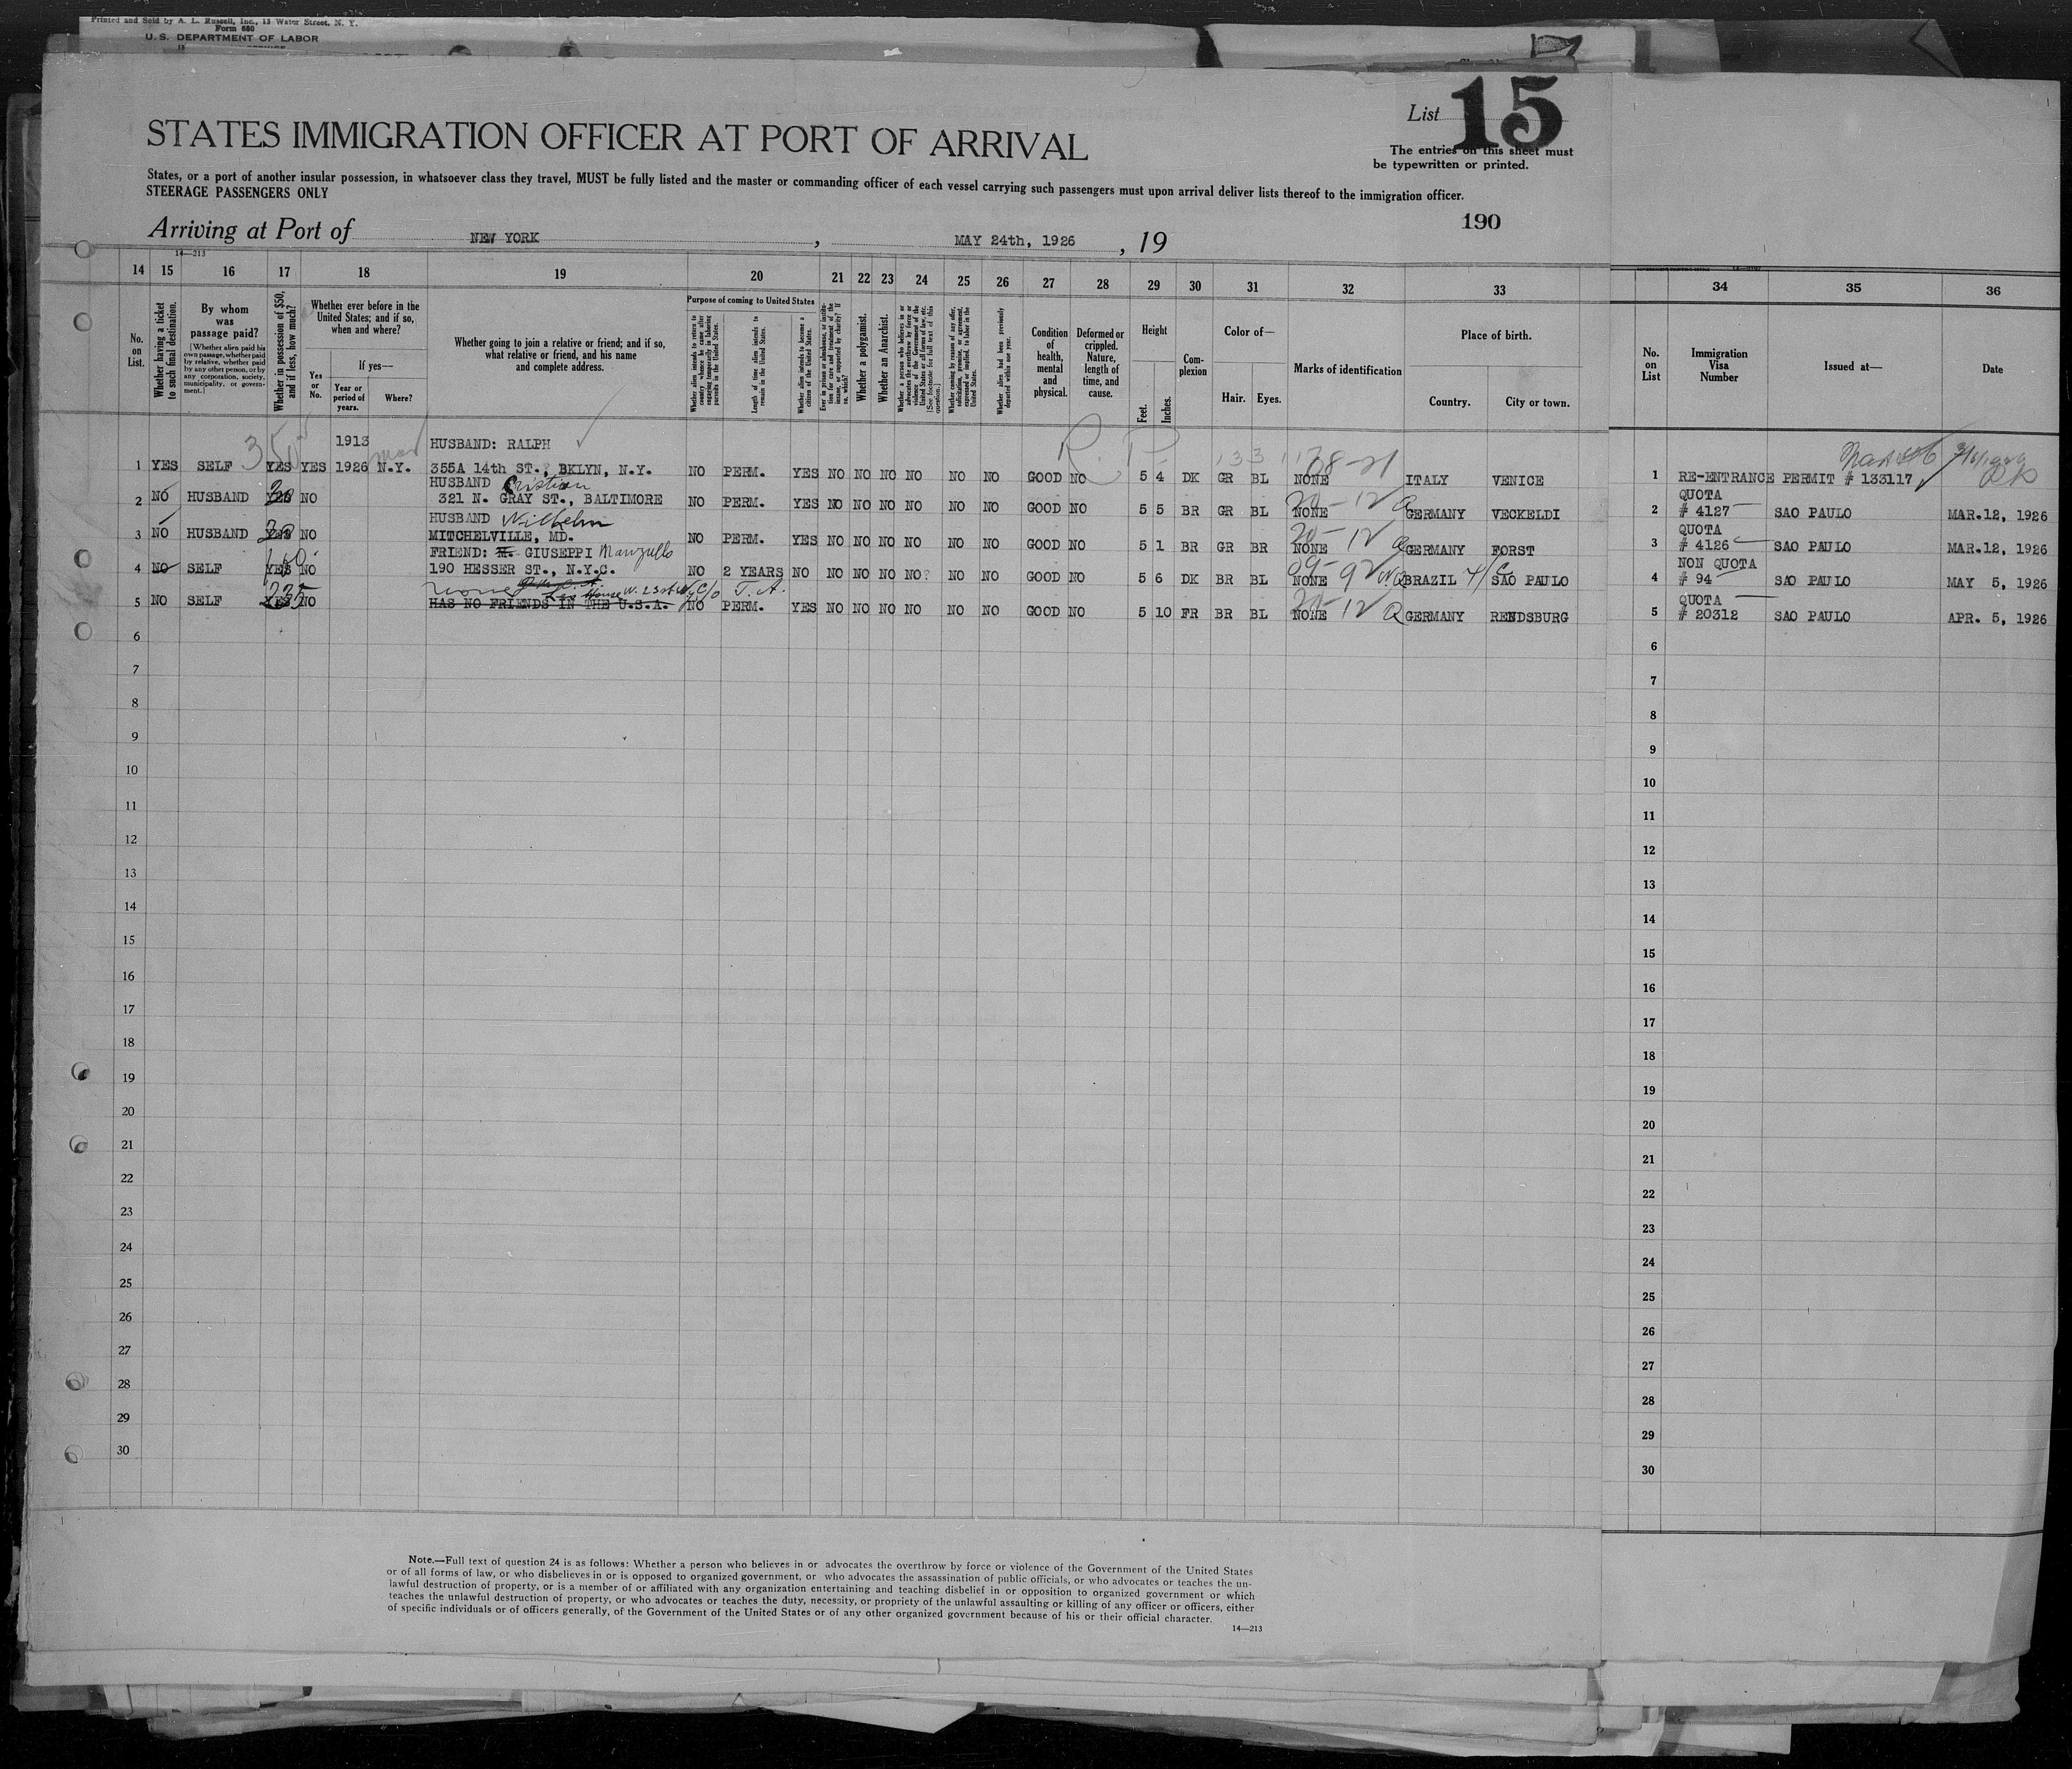 Printed and Sold by A. L. Russell, Inc., 13 Water Street, N. Y.
Form 680
U. S. DEPARTMENT OF LABOR
List 15
STATES IMMIGRATION OFFICER AT PORT OF ARRIVAL
The entries on this sheet must
be typewritten or printed.
States, or a port of another insular possession, in whatsoever class they travel, MUST be fully listed and the master or commanding officer of each vessel carrying such passengers must upon arrival deliver lists thereof to the immigration officer.
STEERAGE PASSENGERS ONLY
190
Arriving at Port of NEW YORK , MAY 24th, 1926 , 19
14—213
14 15 16 17 18 19 20 21 22 23 24 25 26 27 28 29 30 31 32 33 34 35 36
No. on List.
Whether having a ticket to such final destination.
By whom was passage paid?
[Whether alien paid his own passage, whether paid by relative, whether paid by any other person, or by any corporation, society, municipality, or government.]
Whether in possession of $50, and if less, how much?
Whether ever before in the United States; and if so, when and where?
Yes or No.
If yes—
Year or period of years.
Where?
Whether going to join a relative or friend; and if so, what relative or friend, and his name and complete address.
Purpose of coming to United States
Whether alien intends to return to country whence he came after engaging temporarily in laboring pursuits in the United States.
Length of time alien intends to remain in the United States.
Whether alien intends to become a citizen of the United States.
Ever in prison or almshouse, or institution for care and treatment of the insane, or supported by charity? If so, which?
Whether a polygamist.
Whether an Anarchist.
Whether a person who believes in or advocates the overthrow by force or violence of the Government of the United States or all forms of law, etc. [See footnote for full text of this question.]
Whether coming by reason of any offer, solicitation, promise, or agreement, expressed or implied, to labor in the United States.
Whether alien had been previously deported within one year.
Condition of health, mental and physical.
Deformed or crippled. Nature, length of time, and cause.
Height
Feet.
Inches.
Complexion
Color of—
Hair. Eyes.
Marks of identification
Place of birth.
Country. City or town.
No. on List
Immigration Visa Number
Issued at—
Date
1913 HUSBAND: RALPH R. P. 133117 08-21
1 YES SELF 350 YES YES 1926 N.Y. 355A 14th ST., BKLYN, N.Y. NO PERM. YES NO NO NO NO NO NO GOOD NO 5 4 DK GR BL NONE ITALY VENICE 1 RE-ENTRANCE PERMIT # 133117
HUSBAND Cristian 20-12 QUOTA
2 NO HUSBAND YES NO 321 N. GRAY ST., BALTIMORE NO PERM. YES NO NO NO NO NO NO GOOD NO 5 5 BR GR BL NONE Q GERMANY VECKELDI 2 # 4127 SAO PAULO MAR.12, 1926
HUSBAND Wilhelm 20-12 QUOTA
3 NO HUSBAND YES NO MITCHELVILLE, MD. NO PERM. YES NO NO NO NO NO NO GOOD NO 5 1 BR GR BR NONE Q GERMANY FORST 3 # 4126 SAO PAULO MAR.12, 1926
FRIEND: GIUSEPPI Manzullo 09-92 NON QUOTA
4 NO SELF YES NO 190 HESSER ST., N.Y.C. NO 2 YEARS NO NO NO NO NO? NO NO GOOD NO 5 6 DK BR BL NONE NQ BRAZIL 4/C SAO PAULO 4 # 94 SAO PAULO MAY 5, 1926
House W. 23 st N.Y. c/o T.A. 20-12 QUOTA
5 NO SELF 235 YES NO HAS NO FRIENDS IN THE U.S.A. NO PERM. YES NO NO NO NO NO NO GOOD NO 5 10 FR BR BL NONE Q GERMANY RENDSBURG 5 # 20312 SAO PAULO APR. 5, 1926
6 6
7 7
8 8
9 9
10 10
11 11
12 12
13 13
14 14
15 15
16 16
17 17
18 18
19 19
20 20
21 21
22 22
23 23
24 24
25 25
26 26
27 27
28 28
29 29
30 30
Note.—Full text of question 24 is as follows: Whether a person who believes in or advocates the overthrow by force or violence of the Government of the United States
or of all forms of law, or who disbelieves in or is opposed to organized government, or who advocates the assassination of public officials, or who advocates or teaches the un-
lawful destruction of property, or is a member of or affiliated with any organization entertaining and teaching disbelief in or opposition to organized government or which
teaches the unlawful destruction of property, or who advocates or teaches the duty, necessity, or propriety of the unlawful assaulting or killing of any officer or officers, either
of specific individuals or of officers generally, of the Government of the United States or of any other organized government because of his or their official character.
14—213